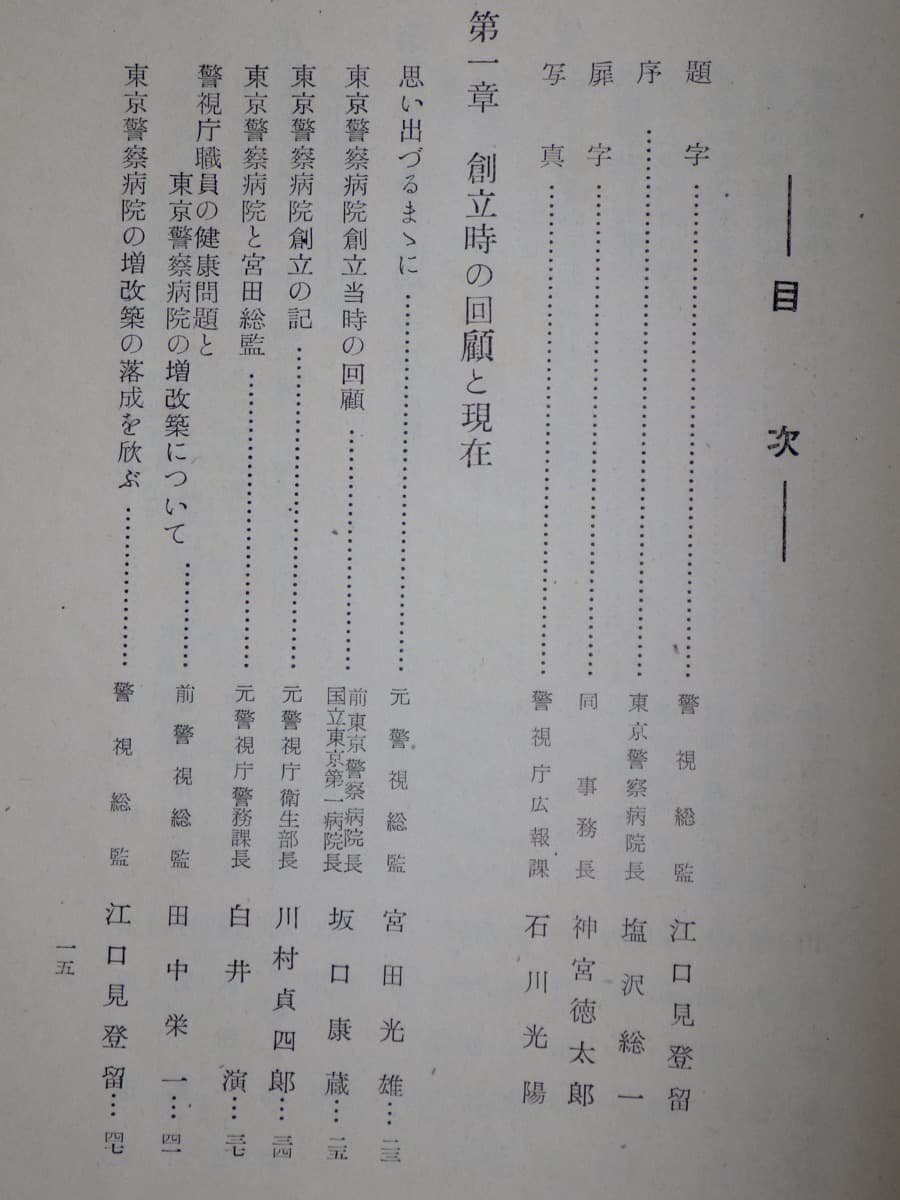 目次
題字……警視総監 江口見登留
序……東京警察病院長 塩沢総一
扉字……同事務長 神宮徳太郎
写真……警視庁広報課 石川光陽
第一章 創立時の回顧と現在
思い出づるまゝに……元警視総監 宮田光雄…二三
東京警察病院創立当時の回顧……前東京警察病院長 国立東京第一病院長 坂口康蔵…二五
東京警察病院創立の記……元警視庁衛生部長 川村貞四郎…三四
東京警察病院と宮田総監……元警視庁警務課長 白井演…三七
警視庁職員の健康問題と
東京警察病院の増改築について……前警視総監 田中栄一…四一
東京警察病院の増改築の落成を欣ぶ……警視総監 江口見登留…四七
一五